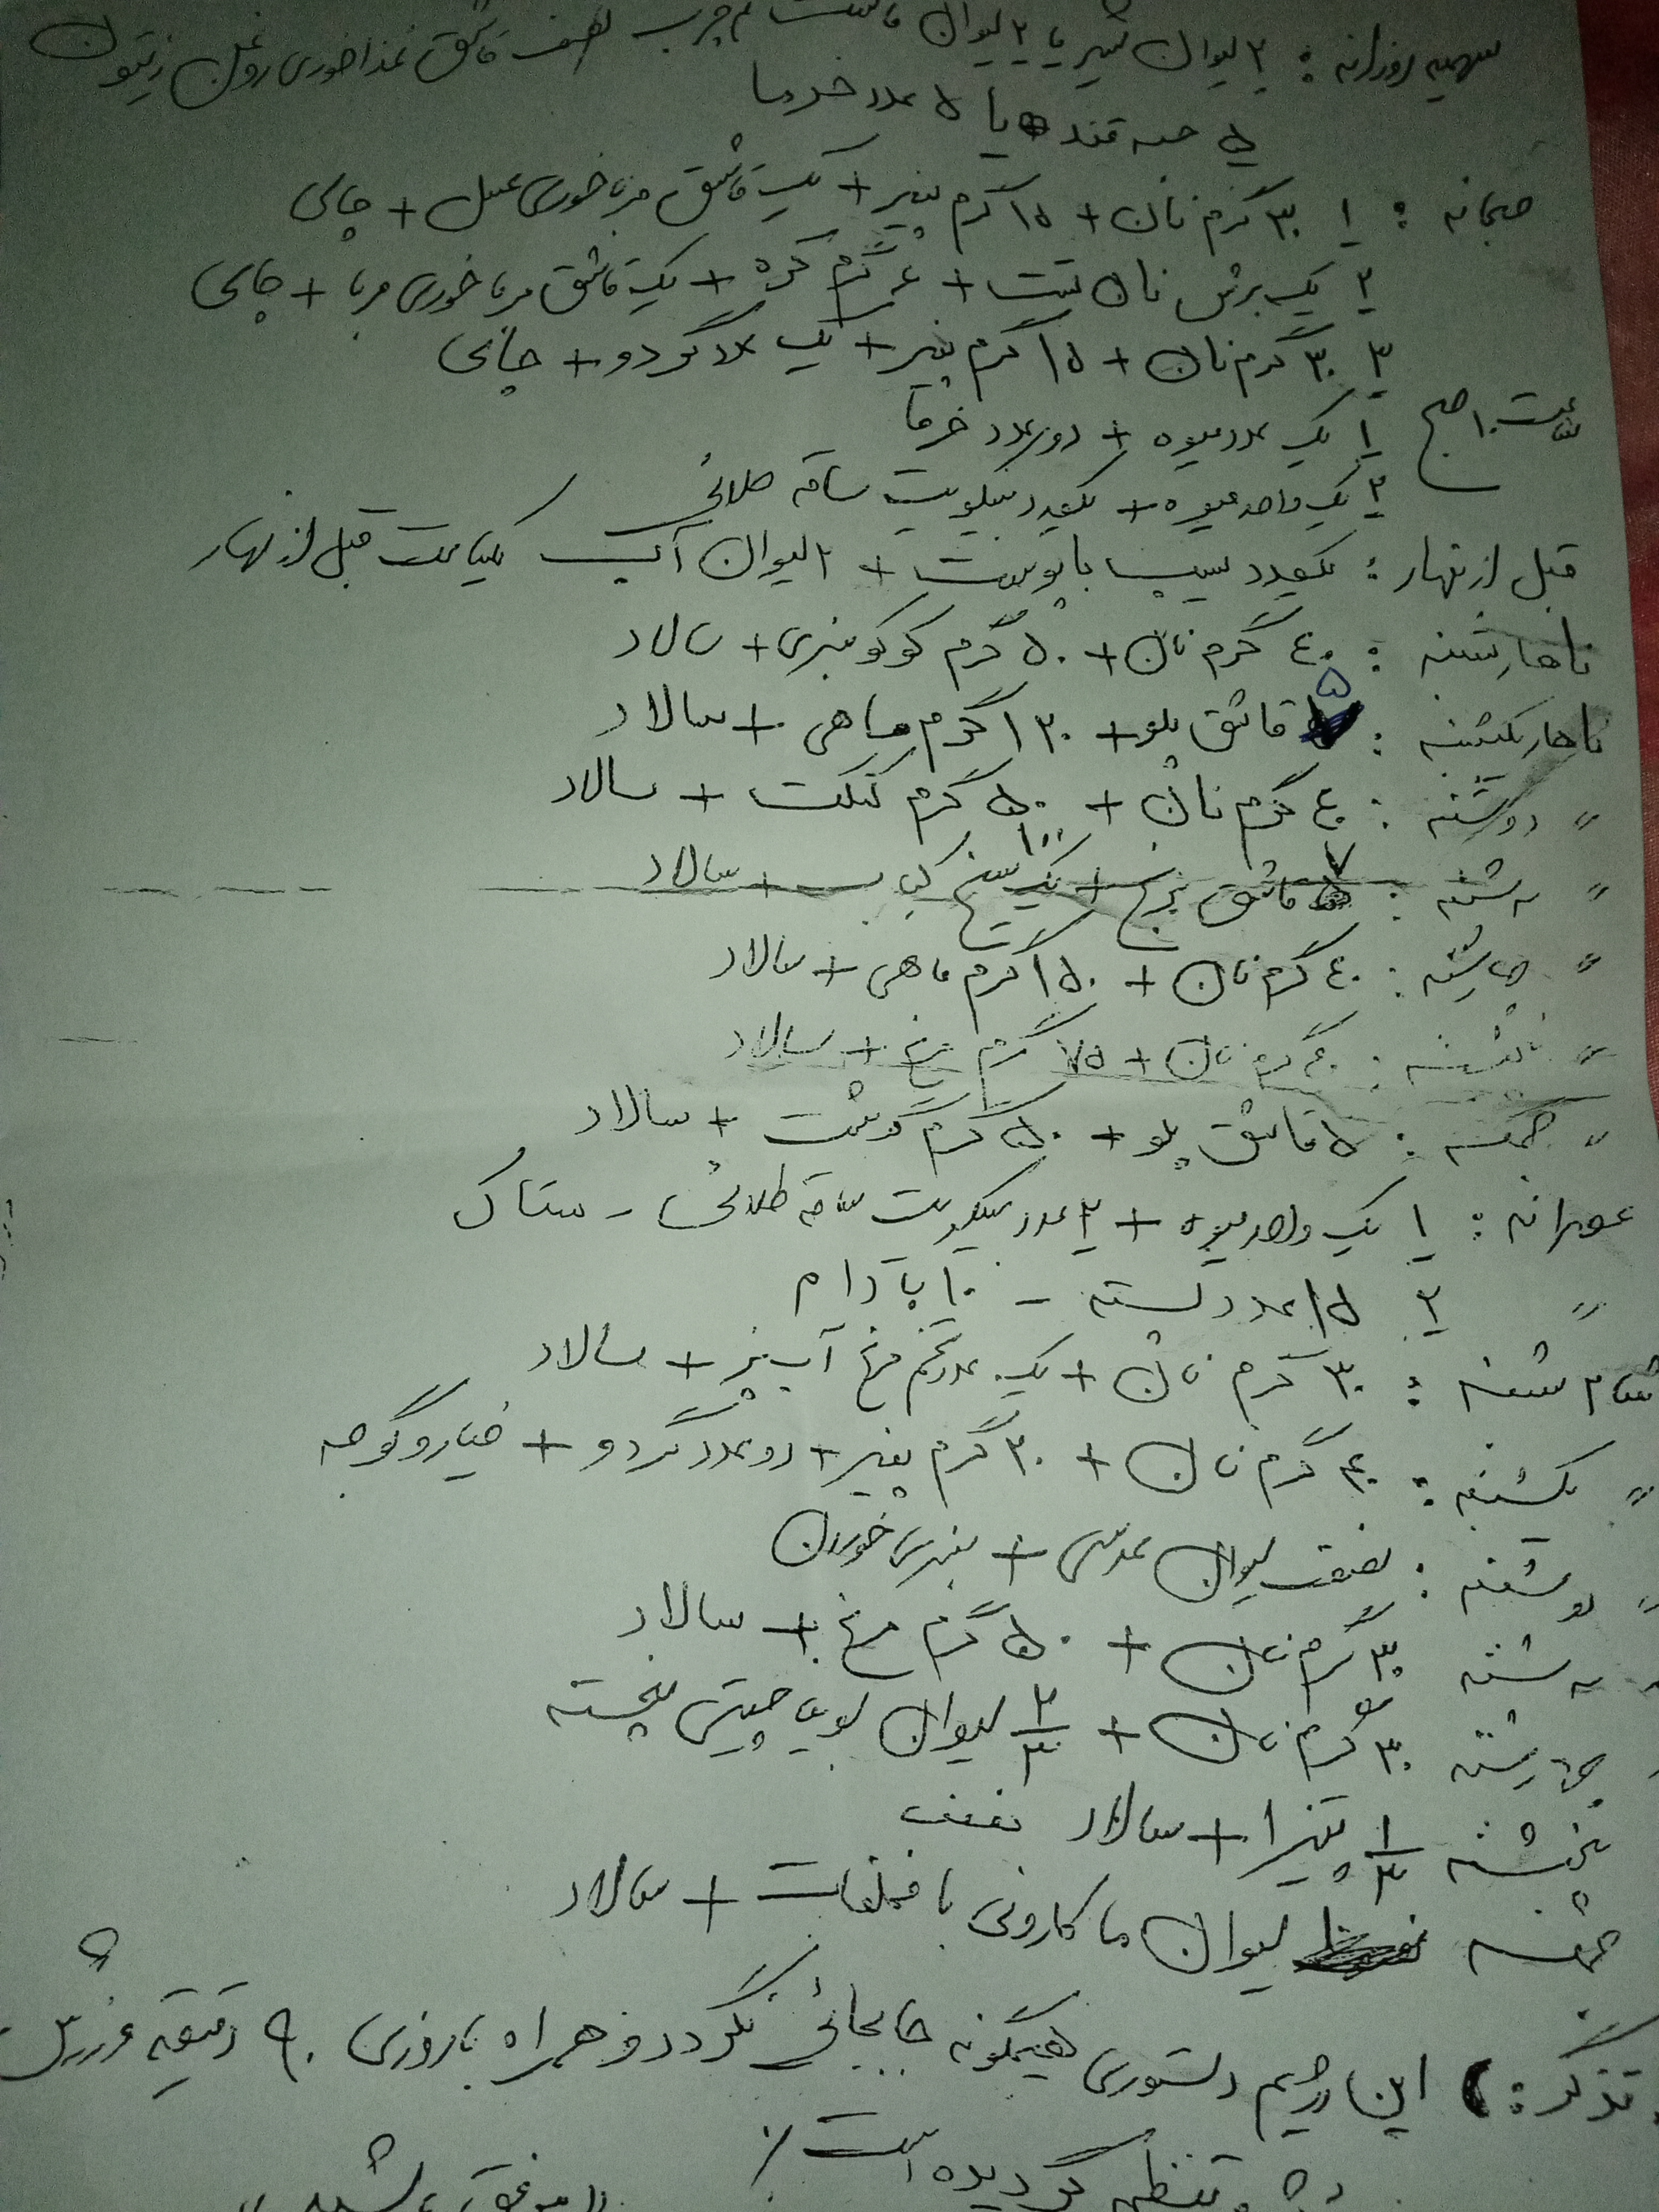 سهمیه روزانه : ۲ لیوان شیر یا ۲ لیوان ماست کم چرب نصف قاشق غذاخوری روغن زیتون
۵ حبه قند یا ۵ عدد خرما
صبحانه : ۱ ۳۰ گرم نان + ۱۵ گرم پنیر + یک قاشق مرباخوری عسل + چای
۲ یک برش نان تست + ۶ گرم کره + یک قاشق مرباخوری مربا + چای
۳ ۳۰ گرم نان + ۱۵ گرم پنیر + یک عدد گردو + چای
ساعت ۱۰ صبح ۱ یک عدد میوه + دو عدد خرما
۲ یک واحد میوه + یکعدد بیسکویت ساقه طلائی
قبل از نهار : یکعدد سیب با پوست + ۲ لیوان آب یکساعت قبل از نهار
ناهار شنبه : ۴۰ گرم نان + ۵۰ گرم کوکو سبزی + سالاد
ناهار یکشنبه : ۵ قاشق پلو + ۱۳۰ گرم ماهی + سالاد
〃 دوشنبه : ۴۰ گرم نان + ۵۰ گرم کتلت + سالاد
〃 سه شنبه : ۷ قاشق برنج + یک سیخ کباب + سالاد
〃 چهارشنبه : ۴۰ گرم نان + ۱۵۰ گرم ماهی + سالاد
〃 پنجشنبه : ۴۰ گرم نان + ۷۵ گرم مرغ + سالاد
〃 جمعه : ۵ قاشق پلو + ۵۰ گرم گوشت + سالاد
عصرانه : ۱ یک واحد میوه + ۲ عدد بیسکویت ساقه طلائی -
〃 ۲ ۱۵ عدد پسته - ۱۰ بادام
شام شنبه : ۳۰ گرم نان + یک عدد تخم مرغ آب پز + سالاد
〃 یکشنبه : ۴۰ گرم نان + ۳۰ گرم پنیر + دو عدد گردو + خیار و گوجه
〃 دوشنبه : نصف لیوان عدسی + سبزی خوردن
سه شنبه ۳۰ گرم نان + ۵۰ گرم مرغ + سالاد
چهارشنبه ۳۰ گرم نان + ۲/۳ لیوان لوبیا چیتی پخته
پنجشنبه ۱/۳ پیتزا + سالاد نصف
جمعه لیوان ماکارونی با مخلفات + سالاد
تذکر : این رژیم دستوری هیچگونه جابجائی نگردد و همراه با روزی ۹۰ دقیقه ورزش
تنظیم گردیده است